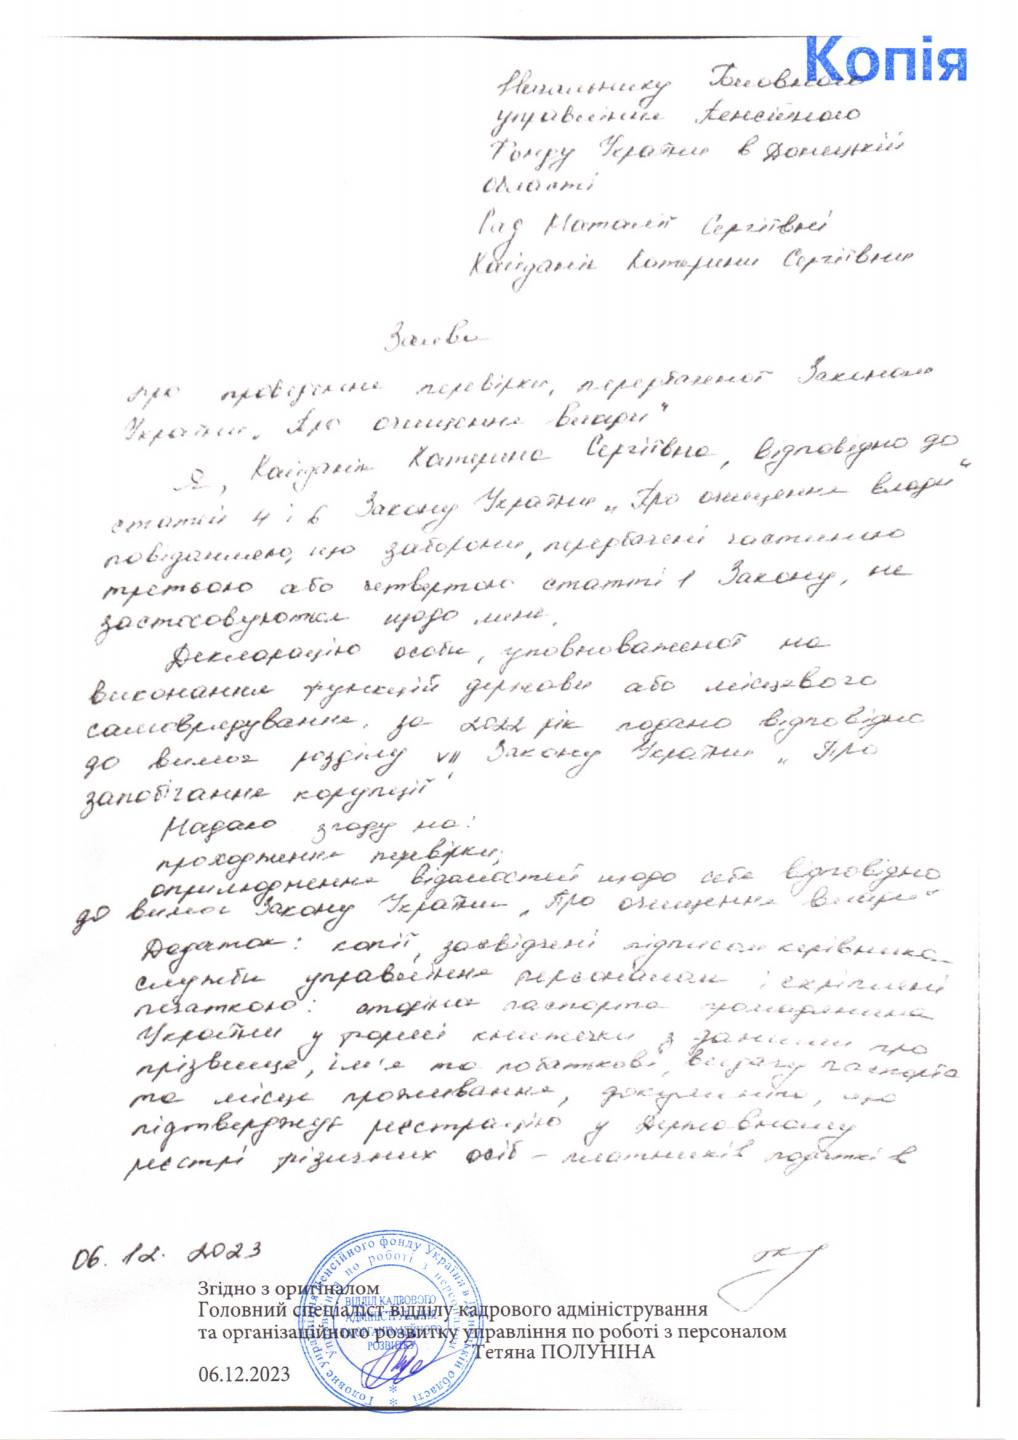 Копія
Начальнику Головного
управління Пенсійного
Фонду України в Донецькій
області
Рад Наталії Сергіївні
Кайданік Катерини Сергіївни
Заява
про проведення перевірки, передбаченої Законом
України „Про очищення влади"
Я, Кайданік Катерина Сергіївна, відповідно до
статей 4 і 6 Закону України „Про очищення влади"
повідомляю, що заборони, передбачені частиною
третьою або четвертою статті 1 Закону, не
застосовуються щодо мене.
Декларацію особи, уповноваженої на
виконання функцій держави або місцевого
самоврядування, за 2022 рік подано відповідно
до вимог розділу VII Закону України „Про
запобігання корупції"
Надаю згоду на:
проходження перевірки;
оприлюднення відомостей щодо себе відповідно
до вимог Закону України „Про очищення влади"
Додаток: копії, засвідчені підписом керівника
служби управління персоналом і скріплені
печаткою: сторінки паспорта громадянина
України у формі книжечки з даними про
прізвище, ім'я та по батькові, видачу паспорта
та місце проживання, документа, що
підтверджує реєстрацію у Державному
реєстрі фізичних осіб – платників податків
06.12.2023
Згідно з оригіналом
Головний спеціаліст відділу кадрового адміністрування
та організаційного розвитку управління по роботі з персоналом
Тетяна ПОЛУНІНА
06.12.2023
Головне управління Пенсійного фонду України в Донецькій області
Управління по роботі з персоналом
ВІДДІЛ КАДРОВОГО
АДМІНІСТРУВАННЯ
ТА ОРГАНІЗАЦІЙНОГО
РОЗВИТКУ